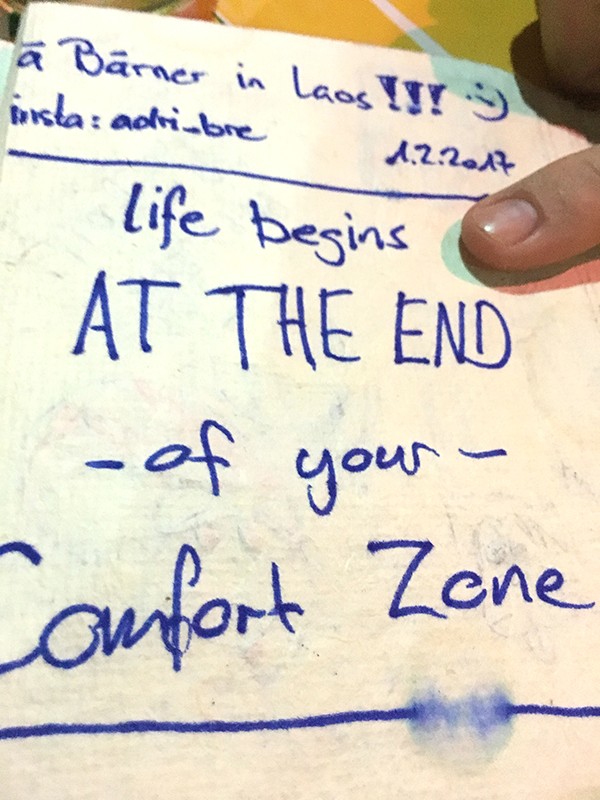 ā Bārner in Laos!!! :)
insta: adri_bre
1.2.2017
life begins
AT THE END
- of your -
Comfort Zone